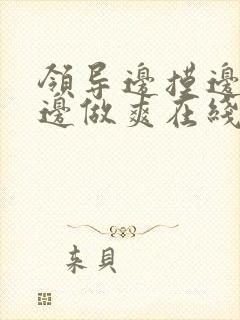 領导邊摸邊
邊做爽在綫
来貝